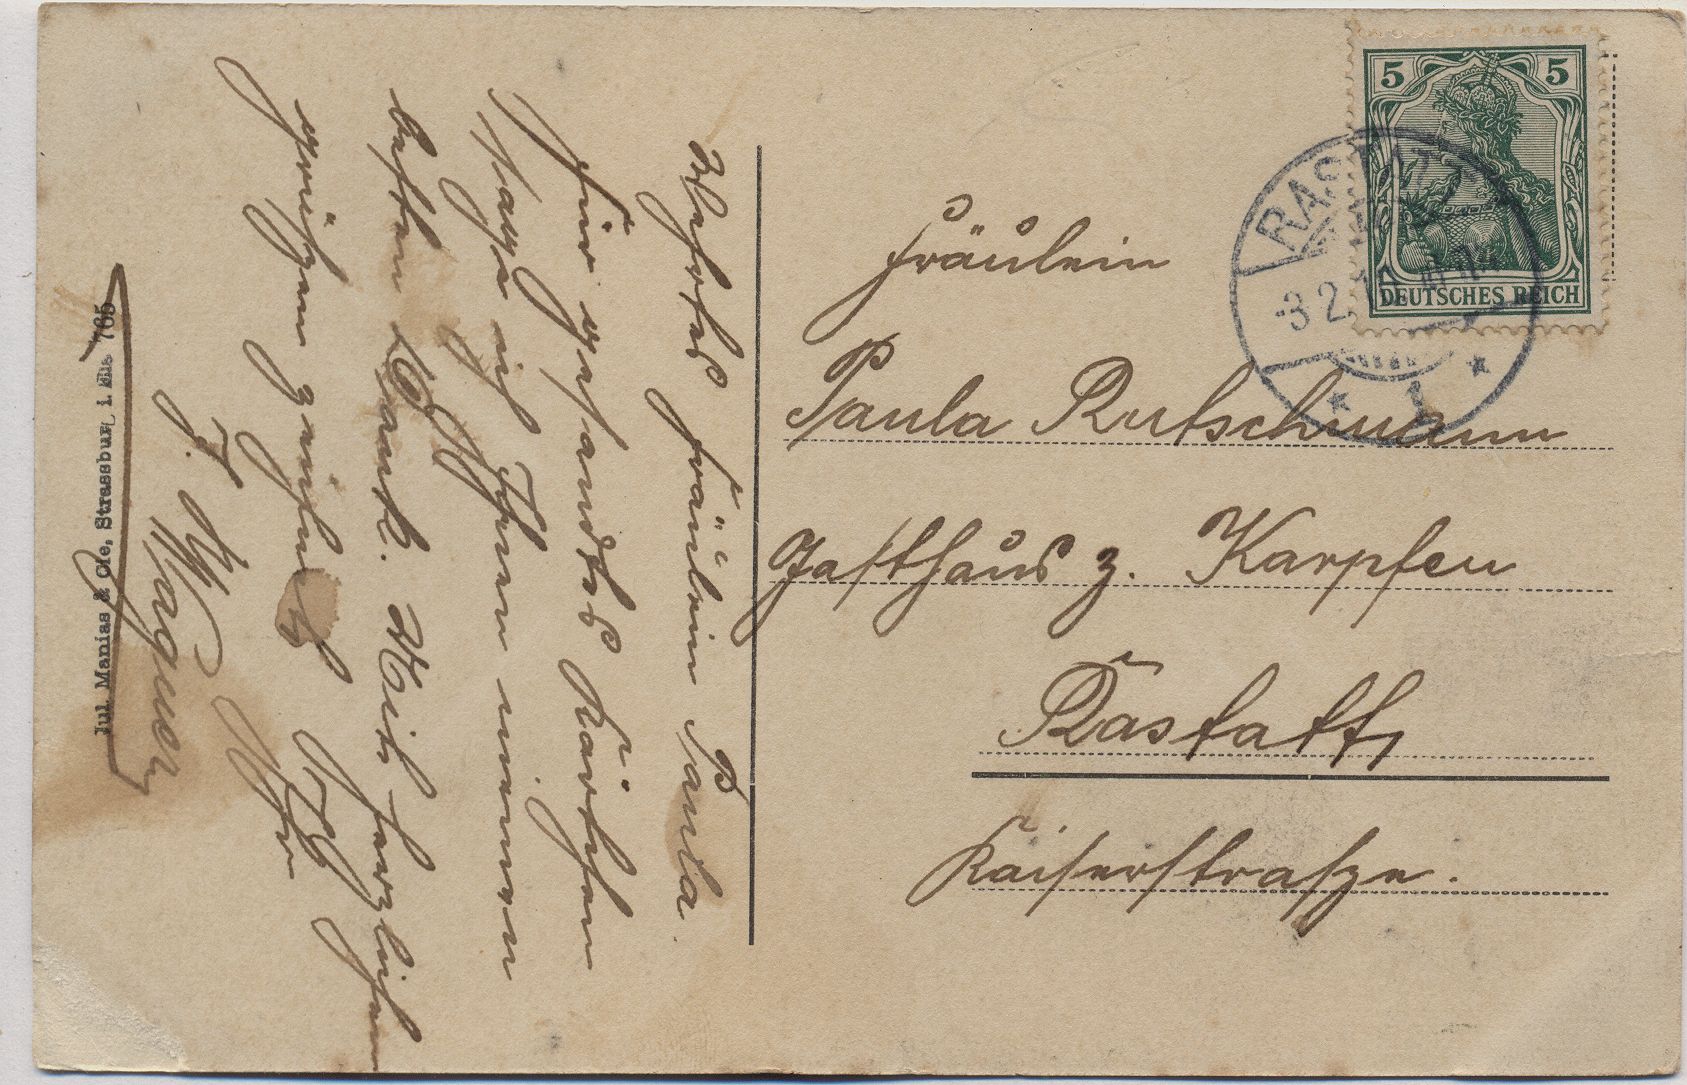 Wertes Fräulein Paula.
Für gesandtes Kärtchen
sage ich Ihnen meinen
besten Dank. Mit herzlichen
grüßen zeichnet Ihr
J. Wagner
Jul. Manias & Cie, Strassburg i. Els. 765
5 5
DEUTSCHES REICH
RASTATT
3 2
* 1 *
Fräulein
Paula Rutschmann
Gasthaus z. Karpfen
Rastatt,
Kaiserstraße.